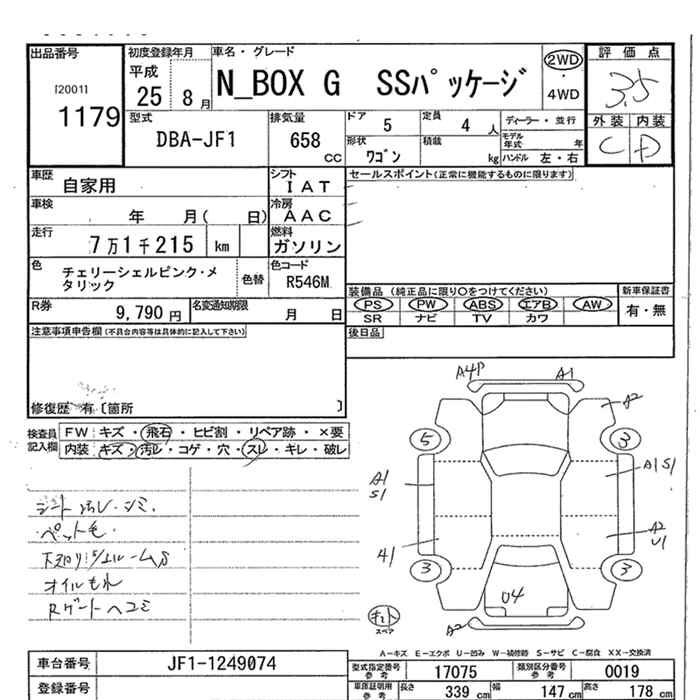 出品番号
[2001]
1179
初度登録年月
平成
25 8月
車名・グレード
N_BOX G SSパッケージ
2WD
・
4WD
評価点
3.5
外装 内装
C D
型式
DBA-JF1
排気量
658
CC
ドア 5
定員 4 人
ディーラー・並行
モデル年式 年
形状 ワゴン
積載 kg
ハンドル 左・右
車歴 自家用
シフト IAT
セールスポイント(正常に機能するものに限ります)
車検 年 月( 日)
冷房 AAC
走行 7万1千215 km
燃料 ガソリン
色 チェリーシェルピンク・メタリック
色替
色コード R546M
装備品 (純正品に限り○をつけてください)
新車保証書
PS PW ABS エアB AW
有・無
SR ナビ TV カワ
R券 9,790 円
名変通知期限 月 日
後日品
注意事項申告欄(不具合内容等は具体的に記入して下さい)
修復歴 有〔箇所 〕
検査員記入欄
FW キズ・飛石・ヒビ割・リペア跡・×要
内装 キズ・汚レ・コゲ・穴・スレ・キレ・破レ
シート汚レ・シミ.
ペット毛.
オイルもれ
Rゲートヘコミ
A4P A1
A2
5 3
A1
S1
A1 S1
A2
U1
3 3
U4
キット
スペア
A2
A－キズ E－エクボ U－凹み W－補修跡 S－サビ C－腐食 XX－交換済
車台番号 JF1-1249074
登録番号
型式指定番号
参考
17075
類別区分番号
参考
0019
車庫証明用
参考
長さ 339 cm
幅 147 cm
高さ 178 cm